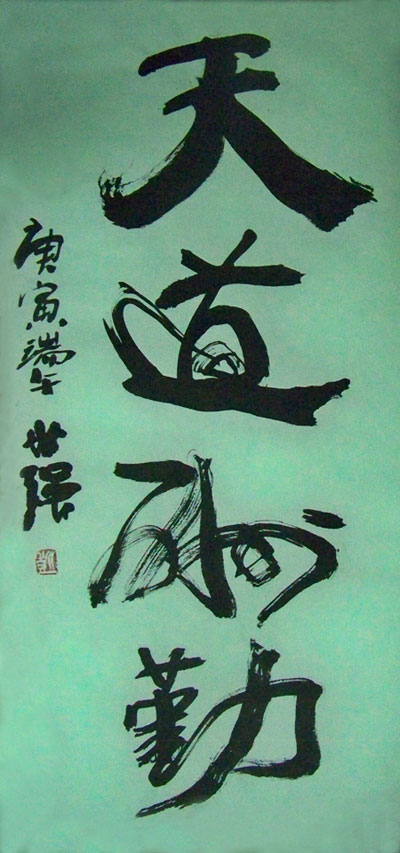 天道酬勤
庚寅端午 世强